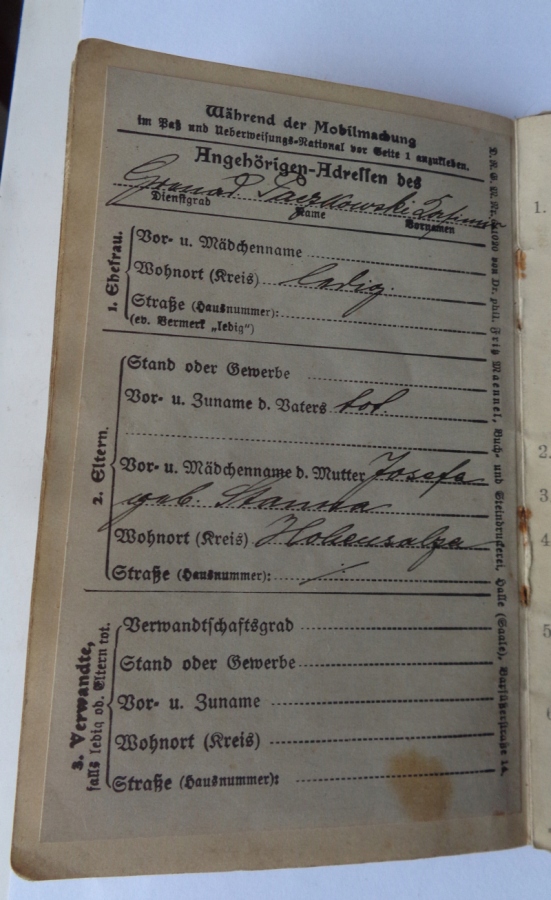 Während der Mobilmachung
im Paß und Ueberweisungs-National vor Seite 1 anzukleben.
Angehörigen-Adressen des
Paczkowski
Dienstgrad Name Vornamen
1. Ehefrau.
Vor- u. Mädchenname
Wohnort (Kreis) ledig.
Straße (Hausnummer):
(ev. Vermerk „ledig“)
2. Eltern.
Stand oder Gewerbe
Vor- u. Zuname d. Vaters tot.
Vor- u. Mädchenname d. Mutter Josefa
geb. Stanna
Wohnort (Kreis) Hohensalza
Straße (Hausnummer): /
3. Verwandte,
falls ledig od. Eltern tot.
Verwandtschaftsgrad
Stand oder Gewerbe
Vor- u. Zuname
Wohnort (Kreis)
Straße (Hausnummer):
von Dr. phil. Fritz Maennel, Buch- und Steindruckerei, Halle (Saale), Barfüßerstraße 14.
1.
2.
3
4
5